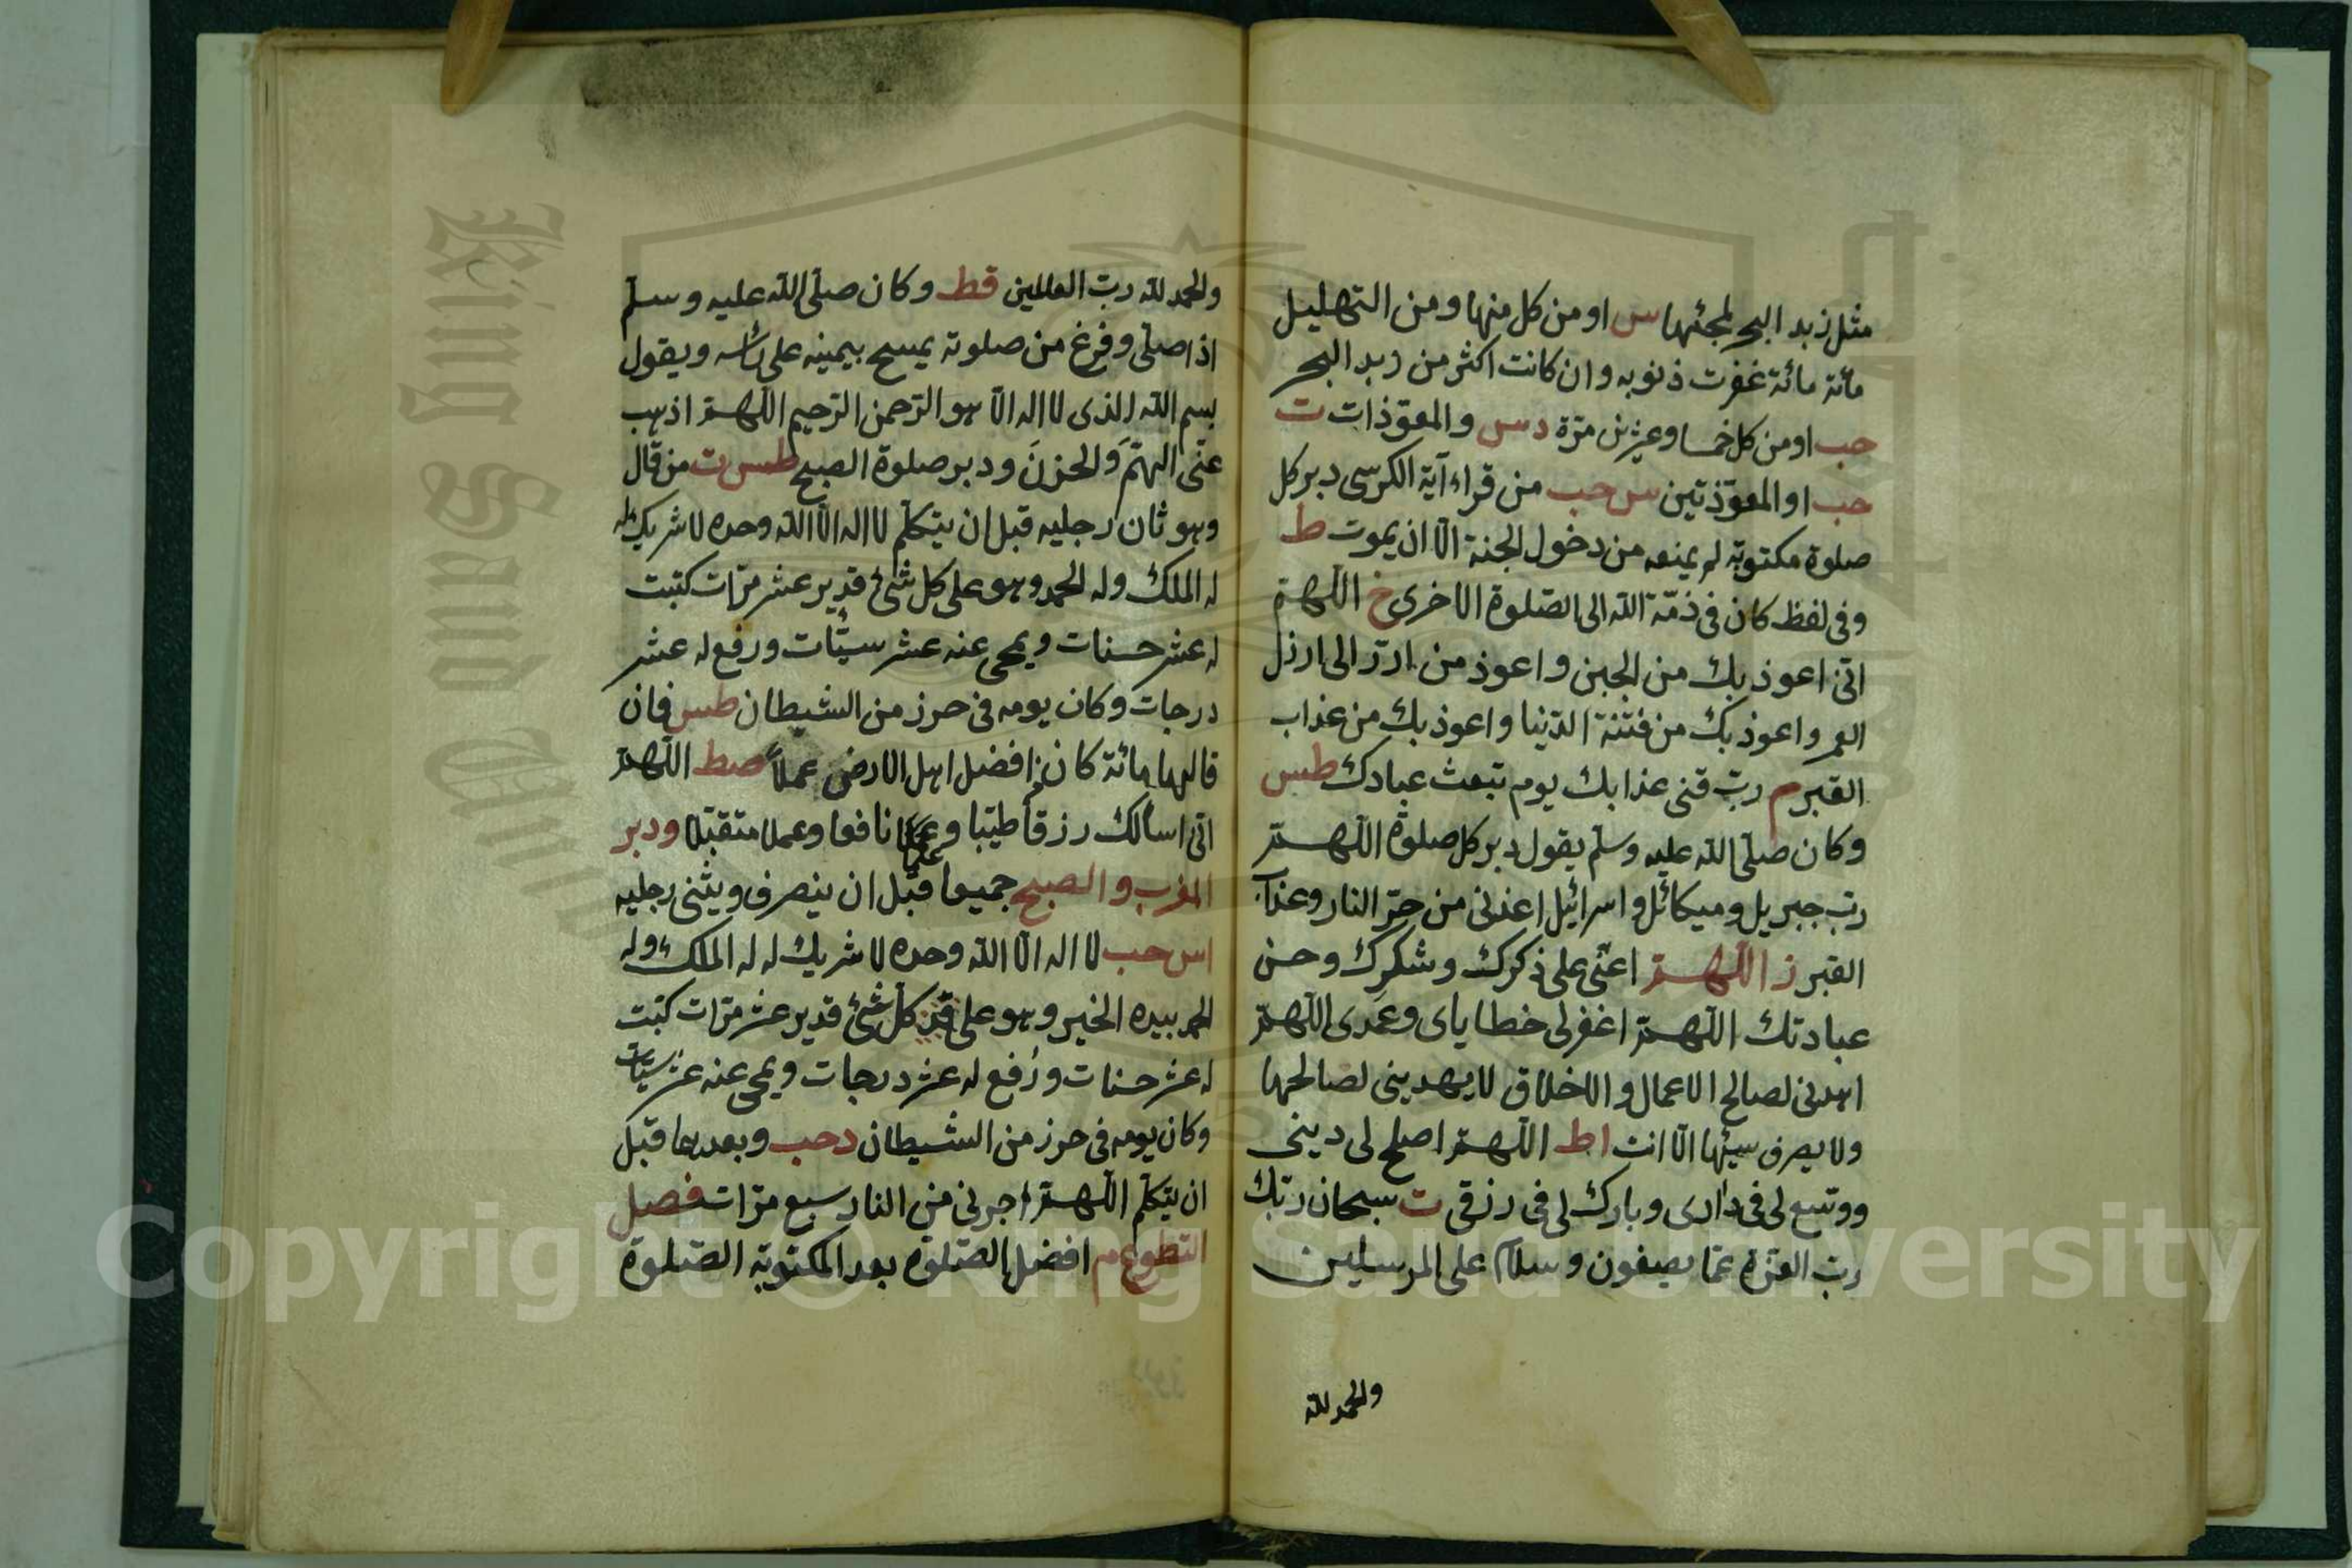 مثل زبد البحر لمجئها س او من كل منها ومن التهليل
مائة مائة غفرت ذنوبه وان كانت اكثر من زبد البحر
حب او من كل خمسا وعشرين مرّة د س والمعوّذات ت
حب او المعوّذتين س حب من قراء آية الكرسى دبر كل
صلوة مكتوبة لم يمنعه من دخول الجنة الّا ان يموت ط
وفى لفظ كان فى ذمّة الله الى الصّلوة الاخرى خ اللّهمّ
انّى اعوذ بك من الجبن واعوذ من اردّ الى ارذل
العمر واعوذ بك من فتنة الدّنيا واعوذ بك من عذاب
القبر م ربّ قنى عذابك يوم تبعث عبادك طس
وكان صلّى الله عليه وسلّم يقول دبر كل صلوة اللّهمّ
ربّ جبريل وميكائل واسرائيل اعذنى من حرّ النار وعذاب
القبر ز اللّهمّ اعنّى على ذكرك وشكرك وحسن
عبادتك اللّهمّ اغفر لى خطاياى وعمدى اللّهمّ
اهدنى لصالح الاعمال والاخلاق لا يهدينى لصالحها
ولا يصرف سيئها الّا انت اط اللّهمّ اصلح لى دينى
ووسّع لى فى دارى وبارك لى فى رزقى ت سبحان ربّك
ربّ العزّة عمّا يصفون وسلام على المرسلين
والحمد لله
والحمد لله ربّ العالمين قط وكان صلّى الله عليه وسلّم
اذا صلّى وفرغ من صلوته يمسح بيمينه على رأسه ويقول
بسم الله الذى لا اله الّا هو الرّحمن الرّحيم اللّهمّ اذهب
عنّى الهمَّ وَالحزنَ ودبر صلوة الصبح طس ت من قال
وهو ثان رجليه قبل ان يتكلّم لا اله الّا الله وحده لا شريك له
له الملك وله الحمد وهو على كل شئ قدير عشر مرّات كتبت
له عشر حسنات ويمحى عنه عشر سيّئات ورفع له عشر
درجات وكان يومه فى حرز من الشيطان طس فان
قالها مائة كان افضل اهل الارض عملاً صط اللّهمّ
انّى اسألك رزقاً طيّبا وعملا نافعا وعملا متقبّلا ودبر
علما
المغرب والصبح جميعا قبل ان ينصرف ويثنى رجليه
اس حب لا اله الّا الله وحده لا شريك له له الملك وله
الحمد بيده الخير وهو على كل شئ قدير عشر مرّات كتبت
له عشر حسنات ورُفع له عشر درجات ويمحى عنه عشر سيّئات
وكان يومه فى حرز من الشيطان د حب وبعدها قبل
ان يتكلّم اللّهمّ اجرنى من النار سبع مرّات فصل
التطوع م افضل الصّلوة بعد المكتوبة الصّلوة
King Saud University
Copyright © King Saud University